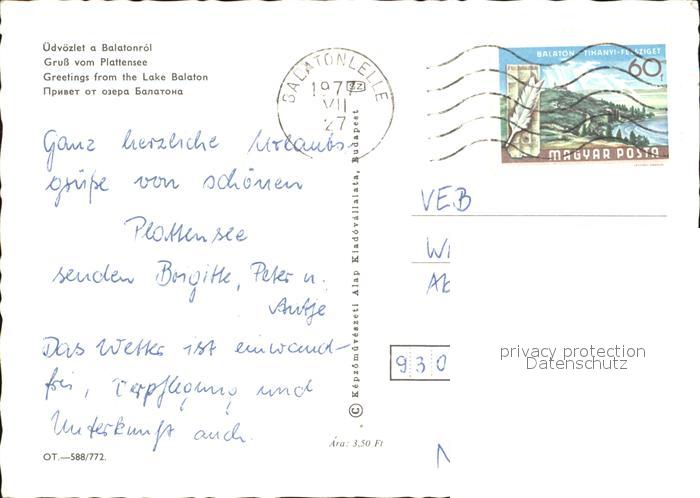 Üdvözlet a Balatonról
Gruß vom Plattensee
Greetings from the Lake Balaton
Привет от озера Балатона
BALATONLELLE
197
VII
27
BALATON - TIHANYI-FÉLSZIGET
60 f
MAGYAR POSTA
Ganz herzliche Urlaubs-
grüße von schönen
Plattensee
senden Birgitte, Peter u.
Antje
Das Wetter ist einwand-
frei, Verpflegung und
Unterkunft auch.
© Képzőművészeti Alap Kiadóvállalata, Budapest
VEB
930
privacy protection
Datenschutz
OT.—588/772.
Ára: 3,50 Ft